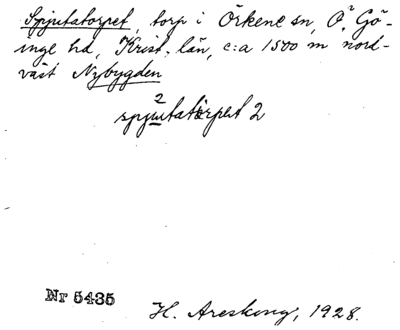 Spjutatorpet, torp i Örkene sn, Ö. Gö-
inge hd, Krist. län, c:a 1500 m nord-
väst Nybygden
2
spjutatorpet 2
Nr 5435
H. Areskoug, 1928.